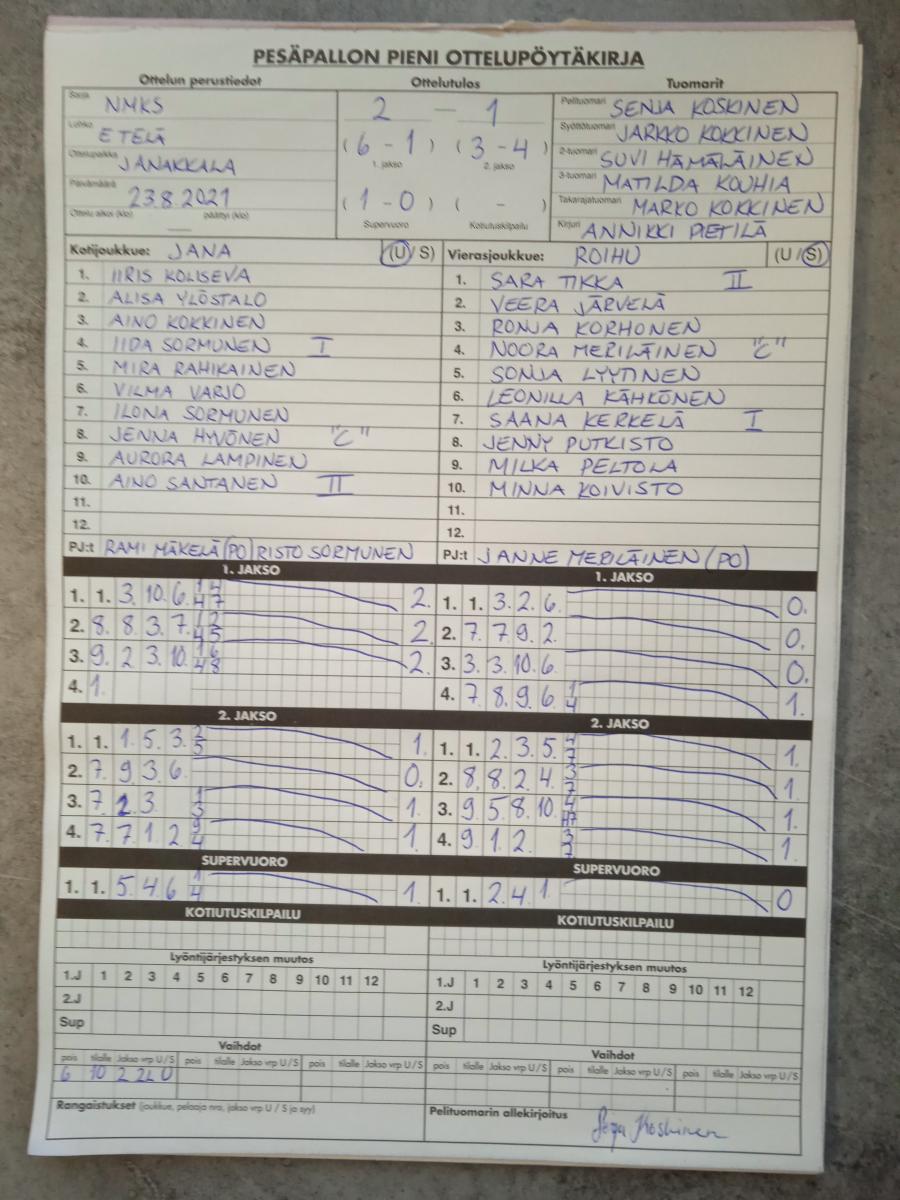 PESÄPALLON PIENI OTTELUPÖYTÄKIRJA
Ottelun perustiedot Ottelutulos Tuomarit
Sarja NMKS
Lohko ETELÄ
Ottelupaikka JANAKKALA
Päivämäärä 23.8.2021
Ottelu alkoi (klo) päättyi (klo)
2 – 1
(6 - 1) (3 - 4)
1. jakso 2. jakso
(1 - 0) ( - )
Supervuoro Kotiutuskilpailu
Pelituomari SENJA KOSKINEN
Syöttötuomari JARKKO KOKKINEN
2-tuomari SUVI HÄMÄLÄINEN
3-tuomari MATILDA KOUHIA
Takarajatuomari MARKO KOKKINEN
Kirjuri ANNIKKI PIETILÄ
Kotijoukkue: JANA (U/S)
1. IIRIS KOLISEVA
2. ALISA YLÖSTALO
3. AINO KOKKINEN
4. IIDA SORMUNEN I
5. MIRA RAHIKAINEN
6. VILMA VARJO
7. ILONA SORMUNEN
8. JENNA HYVÖNEN "C"
9. AURORA LAMPINEN
10. AINO SANTANEN II
11.
12.
PJ:t RAMI MÄKELÄ (PO) RISTO SORMUNEN
Vierasjoukkue: ROIHU (U/S)
1. SARA TIKKA II
2. VEERA JÄRVELÄ
3. RONJA KORHONEN
4. NOORA MERILÄINEN "C"
5. SONJA LYYTINEN
6. LEONILLA KÄHKÖNEN
7. SAANA KERKELÄ I
8. JENNY PUTKISTO
9. MILKA PELTOLA
10. MINNA KOIVISTO
11.
12.
PJ:t JANNE MERILÄINEN (PO)
1. JAKSO
1. 1. 3. 10. 6. 2.
2. 8. 8. 3. 7. 2.
3. 9. 2. 3. 10. 2.
4. 1.
2. JAKSO
1. 1. 1. 5. 3. 2 5 1.
2. 7. 9. 3. 6. 0.
3. 7. 2. 3. 1 3 1.
4. 7. 7. 1. 2. 9 4 1.
SUPERVUORO
1. 1. 5. 4. 6 1 4 1.
KOTIUTUSKILPAILU
Lyöntijärjestyksen muutos
1.J 1 2 3 4 5 6 7 8 9 10 11 12
2.J
Sup
Vaihdot
pois tilalle Jakso vrp U/S pois tilalle Jakso vrp U/S pois tilalle Jakso vrp U/S
6 10 2 2L U
Rangaistukset (joukkue, pelaaja nro, jakso vrp U / S ja syy)
1. JAKSO
1. 1. 3. 2. 6. 0.
2. 7. 7. 9. 2. 0.
3. 3. 3. 10. 6. 0.
4. 7. 8. 9. 6. 1 4 1.
2. JAKSO
1. 1. 2. 3. 5. 4 7 1.
2. 8. 8. 2. 4. 3 7 1.
3. 9. 5. 8. 10. 1.
4. 9. 1. 2. 3 7 1.
SUPERVUORO
1. 1. 2. 4. 1. 0
KOTIUTUSKILPAILU
Lyöntijärjestyksen muutos
1.J 1 2 3 4 5 6 7 8 9 10 11 12
2.J
Sup
Vaihdot
pois tilalle Jakso vrp U/S pois tilalle Jakso vrp U/S pois tilalle Jakso vrp U/S
Pelituomarin allekirjoitus Senja Koskinen